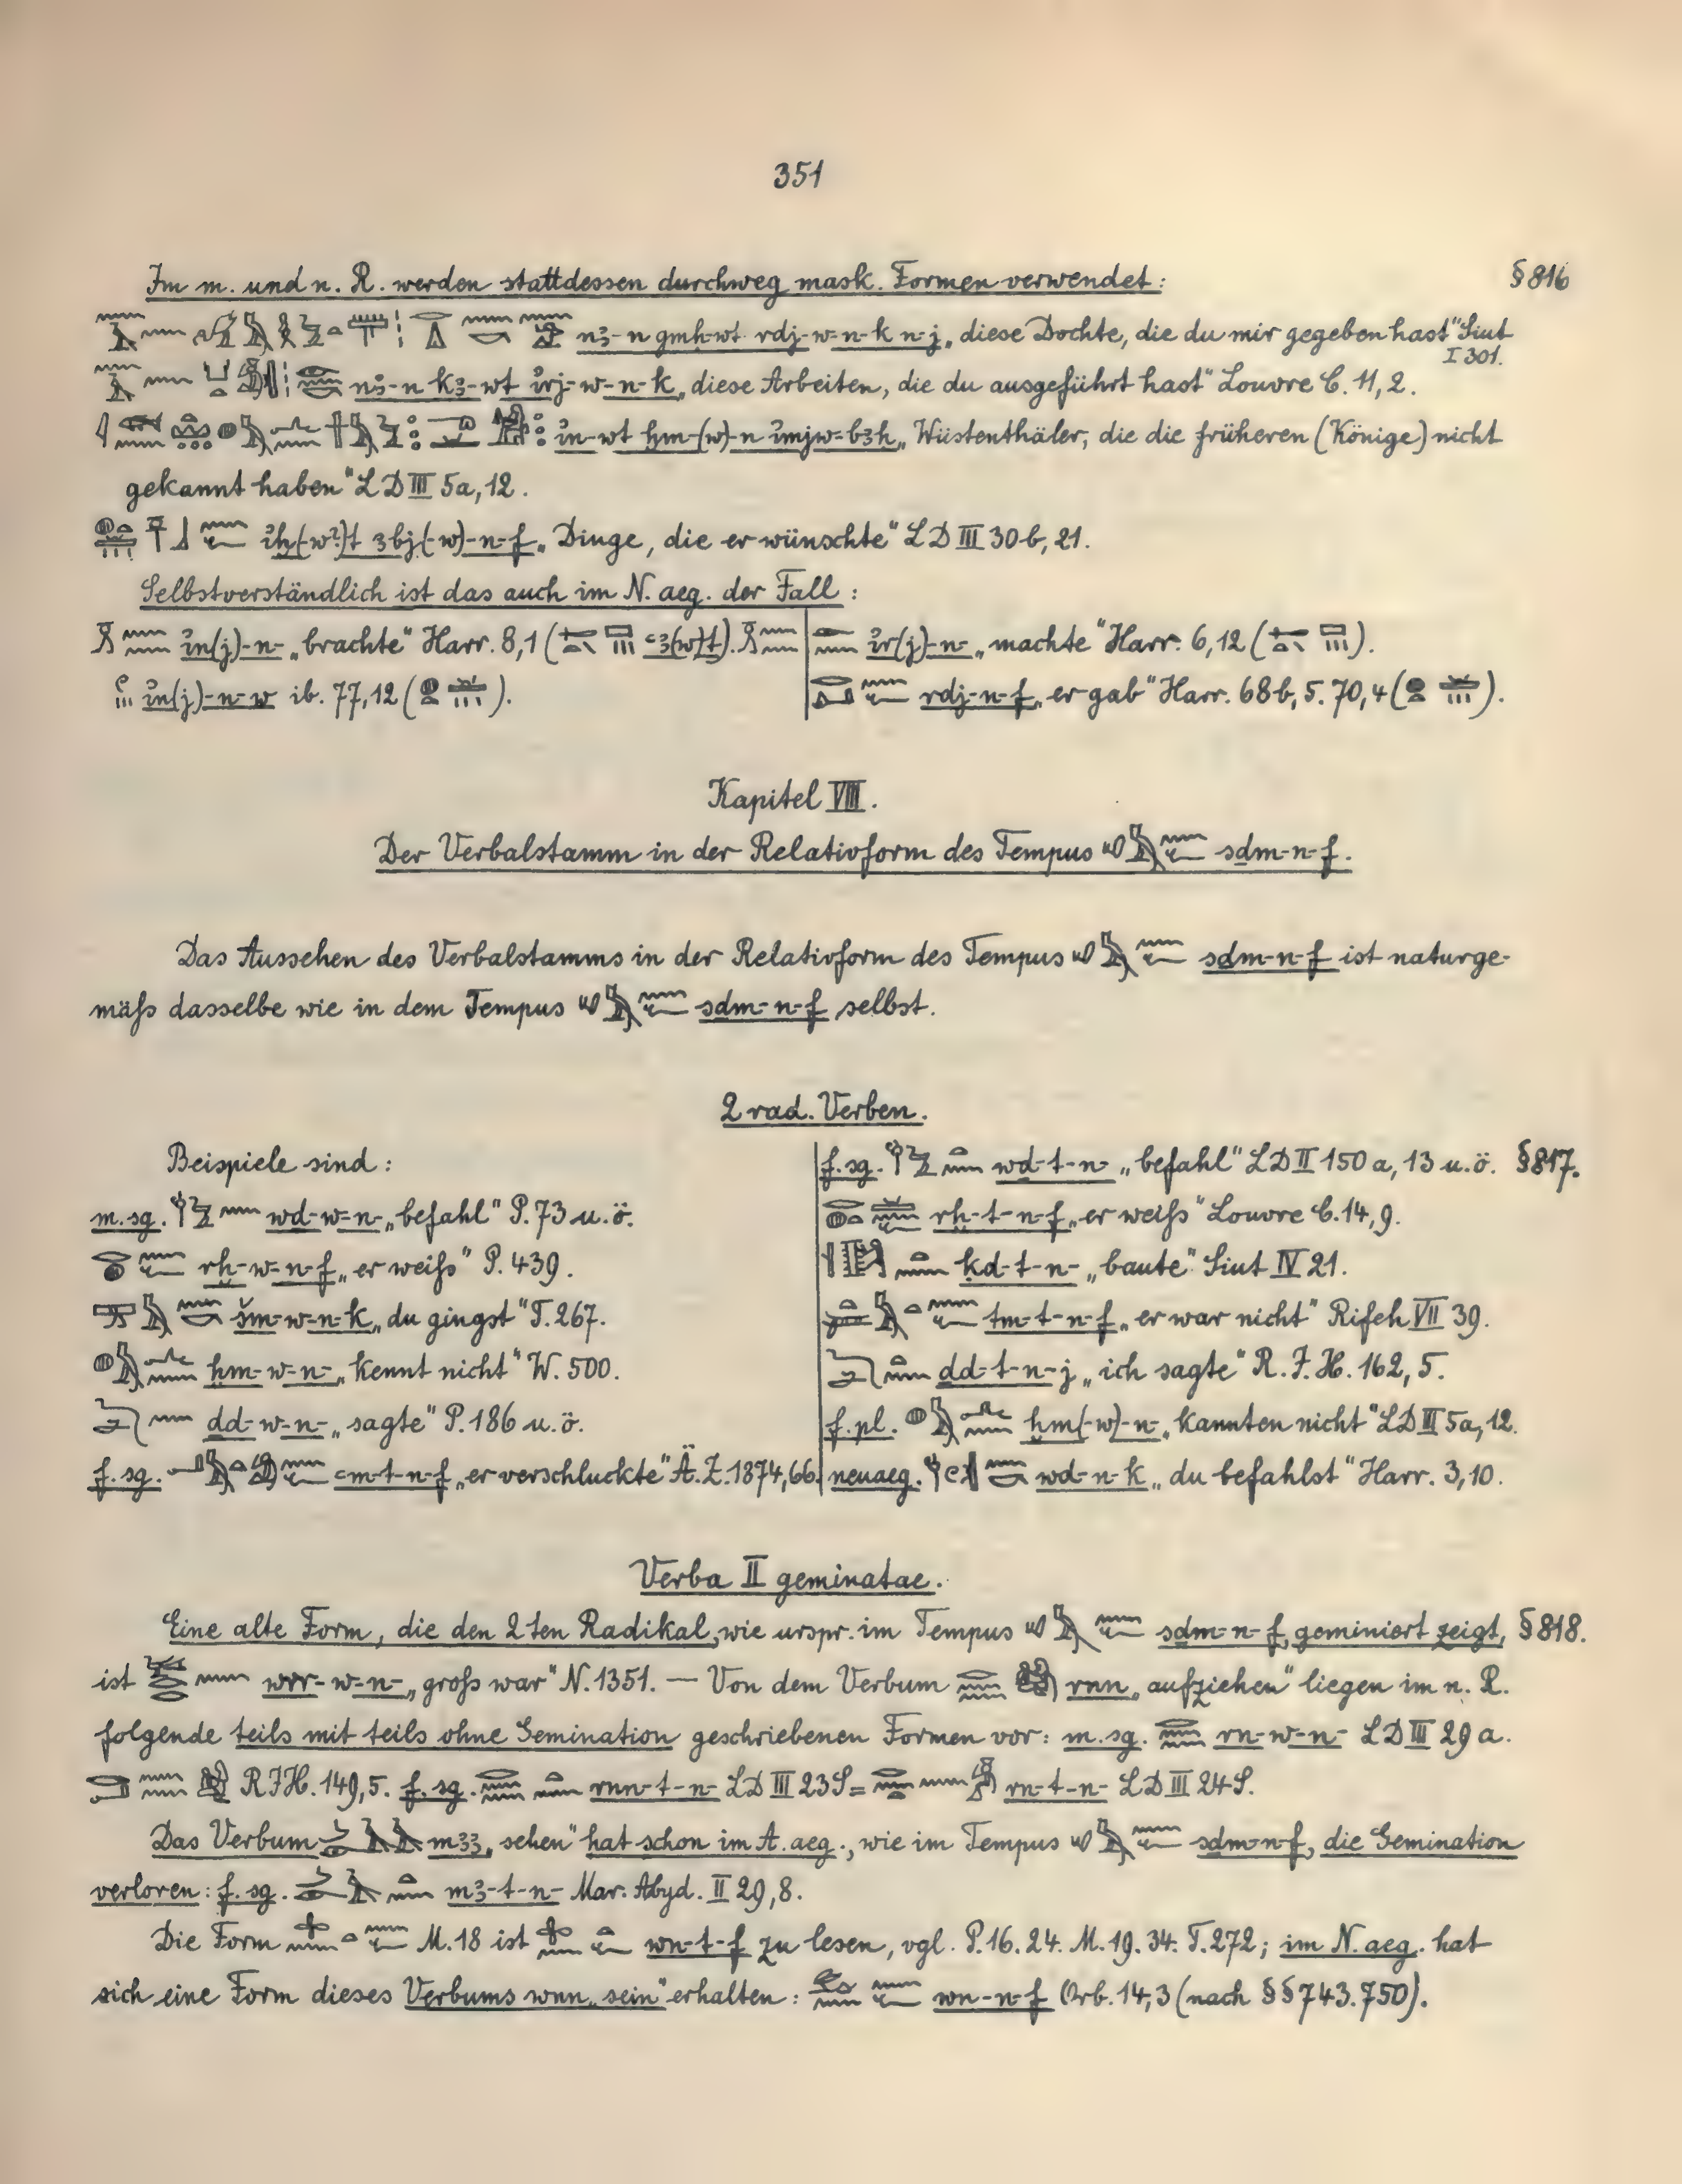 351
Im m. und n. R. werden stattdessen durchweg mask. Formen verwendet: § 816
nꜣ-n gmḥ-wt rdj-w-n-k n-j „diese Dochte, die du mir gegeben hast" Siut I 301.
nꜣ-n kꜣ-wt ỉrj-w-n-k „diese Arbeiten, die du ausgeführt hast" Louvre C. 11, 2.
ỉn-wt ḫm-(w)-n ỉmjw-bꜣḥ „Wüstenthäler, die die früheren (Könige) nicht
gekannt haben" LD III 5a, 12.
ỉḫ(-w?)t ꜣbj(-w)-n-f „Dinge, die er wünschte" LD III 30 b, 21.
Selbstverständlich ist das auch im N. aeg. der Fall:
ỉn(j)-n- „brachte" Harr. 8,1 ( ꜥꜣ(w)t).
ỉn(j)-n-w ib. 77,12 ( ).
ỉr(j)-n- „machte" Harr. 6,12 ( ).
rdj-n-f „er gab" Harr. 68 b, 5. 70,4 ( ).
Kapitel VIII.
Der Verbalstamm in der Relativform des Tempus sḏm-n-f.
Das Aussehen des Verbalstamms in der Relativform des Tempus sḏm-n-f ist naturge-
mäß dasselbe wie in dem Tempus sḏm-n-f selbst.
2 rad. Verben.
Beispiele sind:
m. sg. wḏ-w-n- „befahl" P. 73 u. ö.
rḫ-w-n-f „er weiß" P. 439.
šm-w-n-k „du gingst" T. 267.
ḫm-w-n- „kennt nicht" W. 500.
ḏd-w-n- „sagte" P. 186 u. ö.
f. sg. ꜥm-t-n-f „er verschluckte" Ä. Z. 1874, 66.
f. sg. wḏ-t-n- „befahl" LD II 150 a, 13 u. ö. § 817.
rḫ-t-n-f „er weiß" Louvre C. 14, 9.
ḳd-t-n- „baute" Siut IV 21.
tm-t-n-f „er war nicht" Rifeh VII 39.
ḏd-t-n-j „ich sagte" R. J. H. 162, 5.
f. pl. ḫm(-w)-n- „kannten nicht" LD III 5a, 12.
neuaeg. wḏ-n-k „du befahlst" Harr. 3, 10.
Verba II geminatae.
Eine alte Form, die den 2ten Radikal, wie urspr. im Tempus sḏm-n-f, geminiert zeigt, § 818.
ist wrr-w-n- „groß war" N. 1351. — Von dem Verbum rnn „aufziehen" liegen im n. R.
folgende teils mit teils ohne Gemination geschriebenen Formen vor: m. sg. rn-w-n- LD III 29 a.
RJH. 149, 5. f. sg. rnn-t-n- LD III 23 S = rn-t-n- LD III 24 S.
Das Verbum mꜣꜣ „sehen" hat schon im A. aeg., wie im Tempus sḏm-n-f, die Gemination
verloren: f. sg. mꜣ-t-n- Mar. Abyd. II 29, 8.
Die Form M. 18 ist wn-t-f zu lesen, vgl. P. 16. 24. M. 19. 34. T. 272; im N. aeg. hat
sich eine Form dieses Verbums wnn „sein" erhalten: wn-n-f Orb. 14, 3 (nach §§ 743. 750).